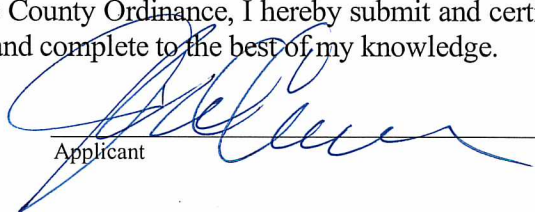 County Ordinance, I hereby submit and certi
and complete to the best of my knowledge.
Applicant